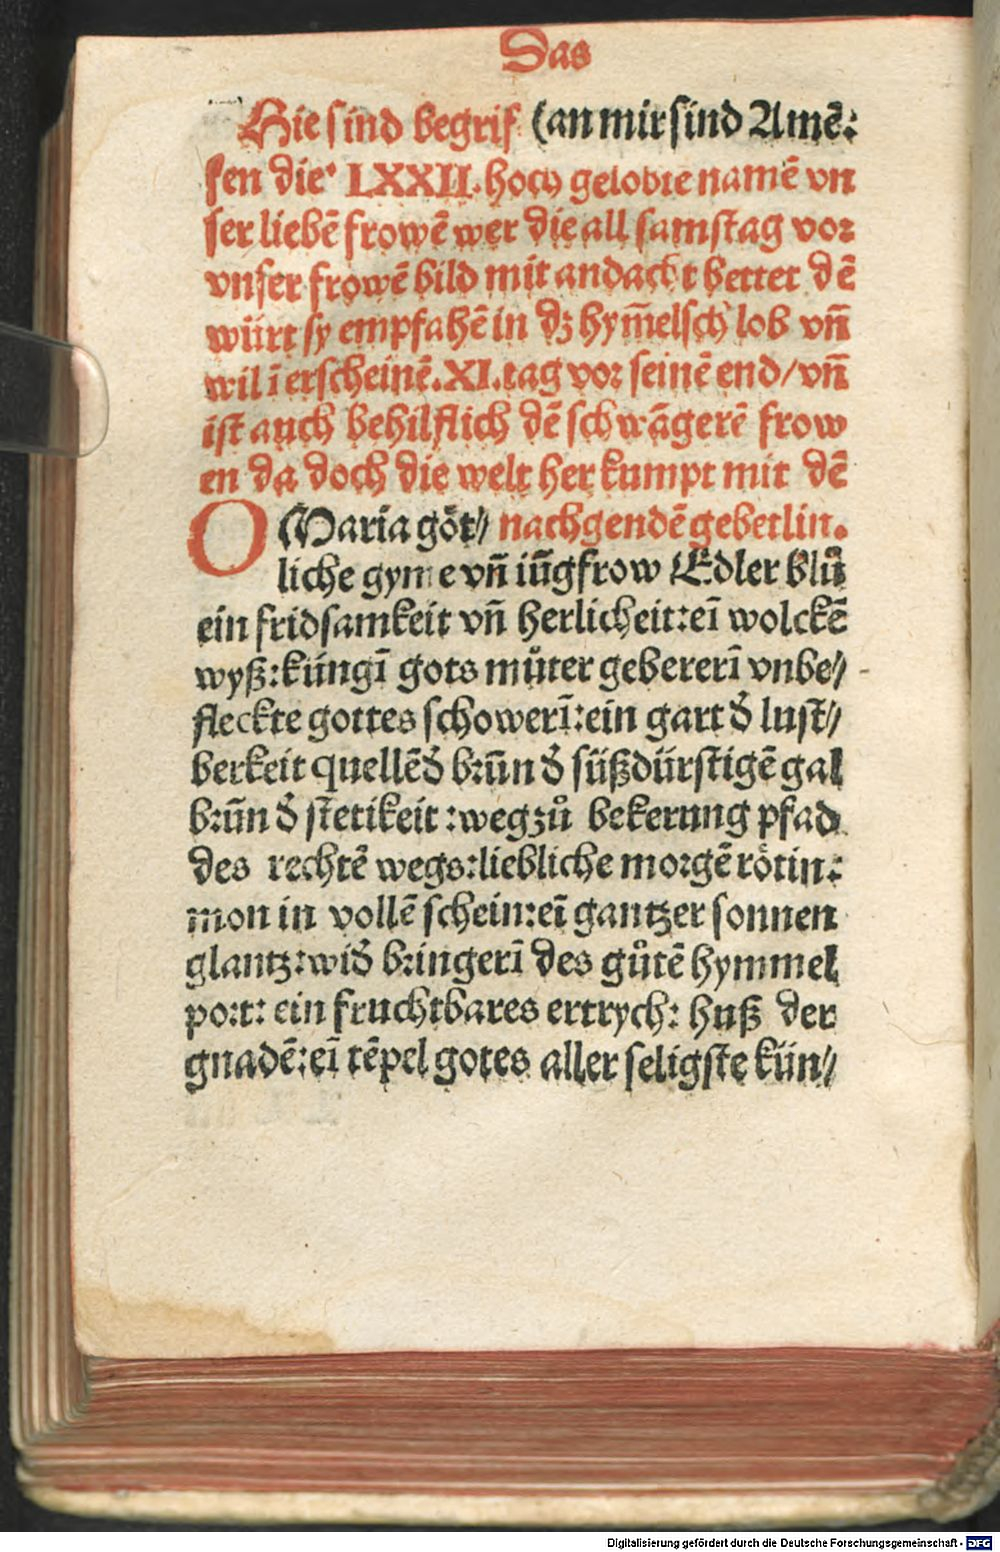 Das
Hie sind begrif (an mir sind Amē:
fen die LXXII. hoch gelobte namē vn
ser liebē frowē wer die all samstag vor
vnser frowē bild mit andacht bettet dē
würt sy empfahē in dz hym̄elsch lob vn̄
wil ī erscheinē. XI. tag vor seinē end/vn̄
ist auch behilflich dē schwāgerē frow
en da doch die welt her kumpt mit dē
O Maria göt⸗ nachgendē gebetlin.
liche gyme vn̄ iūgfrow Edler blů
ein fridsamkeit vn̄ herlicheit: eī wolckē
wyß: küngī gots můter gebererī vnbe⸗
fleckte gottes schowerī: ein gart d̕ lust⸗
berkeit quellēd̕ brūn d̕ süßdürstigē gal
brūn d̕ stetikeit: weg zů bekerung pfad
des rechtē wegs: liebliche morgē rötin:
mon in vollē schein: eī gantzer sonnen
glantz: wid̕ bringerī des gůtē hymmel
port: ein fruchtbares ertrych: huß der
gnadē: eī tēpel gotes aller seligste kün⸗
Digitalisierung gefördert durch die Deutsche Forschungsgemeinschaft - DFG